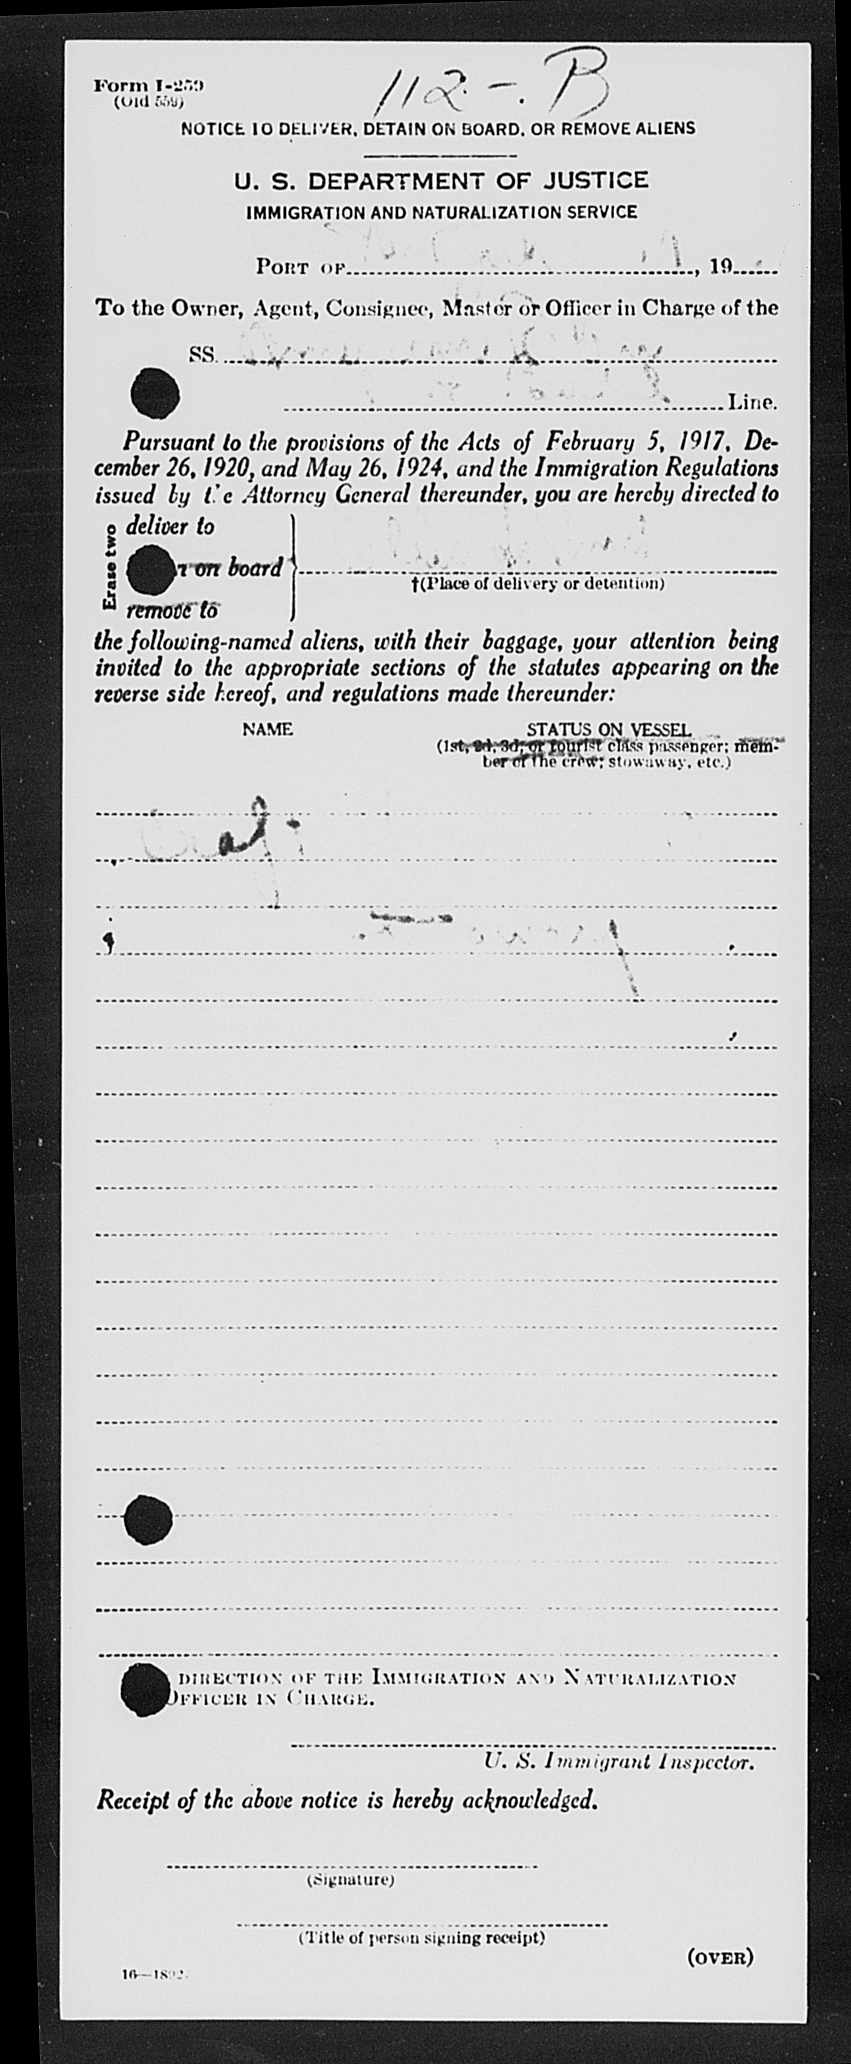 Form I-259
(Old 559)
112-B
NOTICE TO DELIVER, DETAIN ON BOARD, OR REMOVE ALIENS
U. S. DEPARTMENT OF JUSTICE
IMMIGRATION AND NATURALIZATION SERVICE
PORT OF , 19
To the Owner, Agent, Consignee, Master or Officer in Charge of the
SS.
Line.
Pursuant to the provisions of the Acts of February 5, 1917, De-
cember 26, 1920, and May 26, 1924, and the Immigration Regulations
issued by the Attorney General thereunder, you are hereby directed to
Erase two
deliver to
on board
†(Place of delivery or detention)
remove to
the following-named aliens, with their baggage, your attention being
invited to the appropriate sections of the statutes appearing on the
reverse side hereof, and regulations made thereunder:
NAME STATUS ON VESSEL
(1st, 2d, 3d, or tourist class passenger; mem-
ber of the crew; stowaway, etc.)
DIRECTION OF THE IMMIGRATION AND NATURALIZATION
OFFICER IN CHARGE.
U. S. Immigrant Inspector.
Receipt of the above notice is hereby acknowledged.
(Signature)
(Title of person signing receipt)
(OVER)